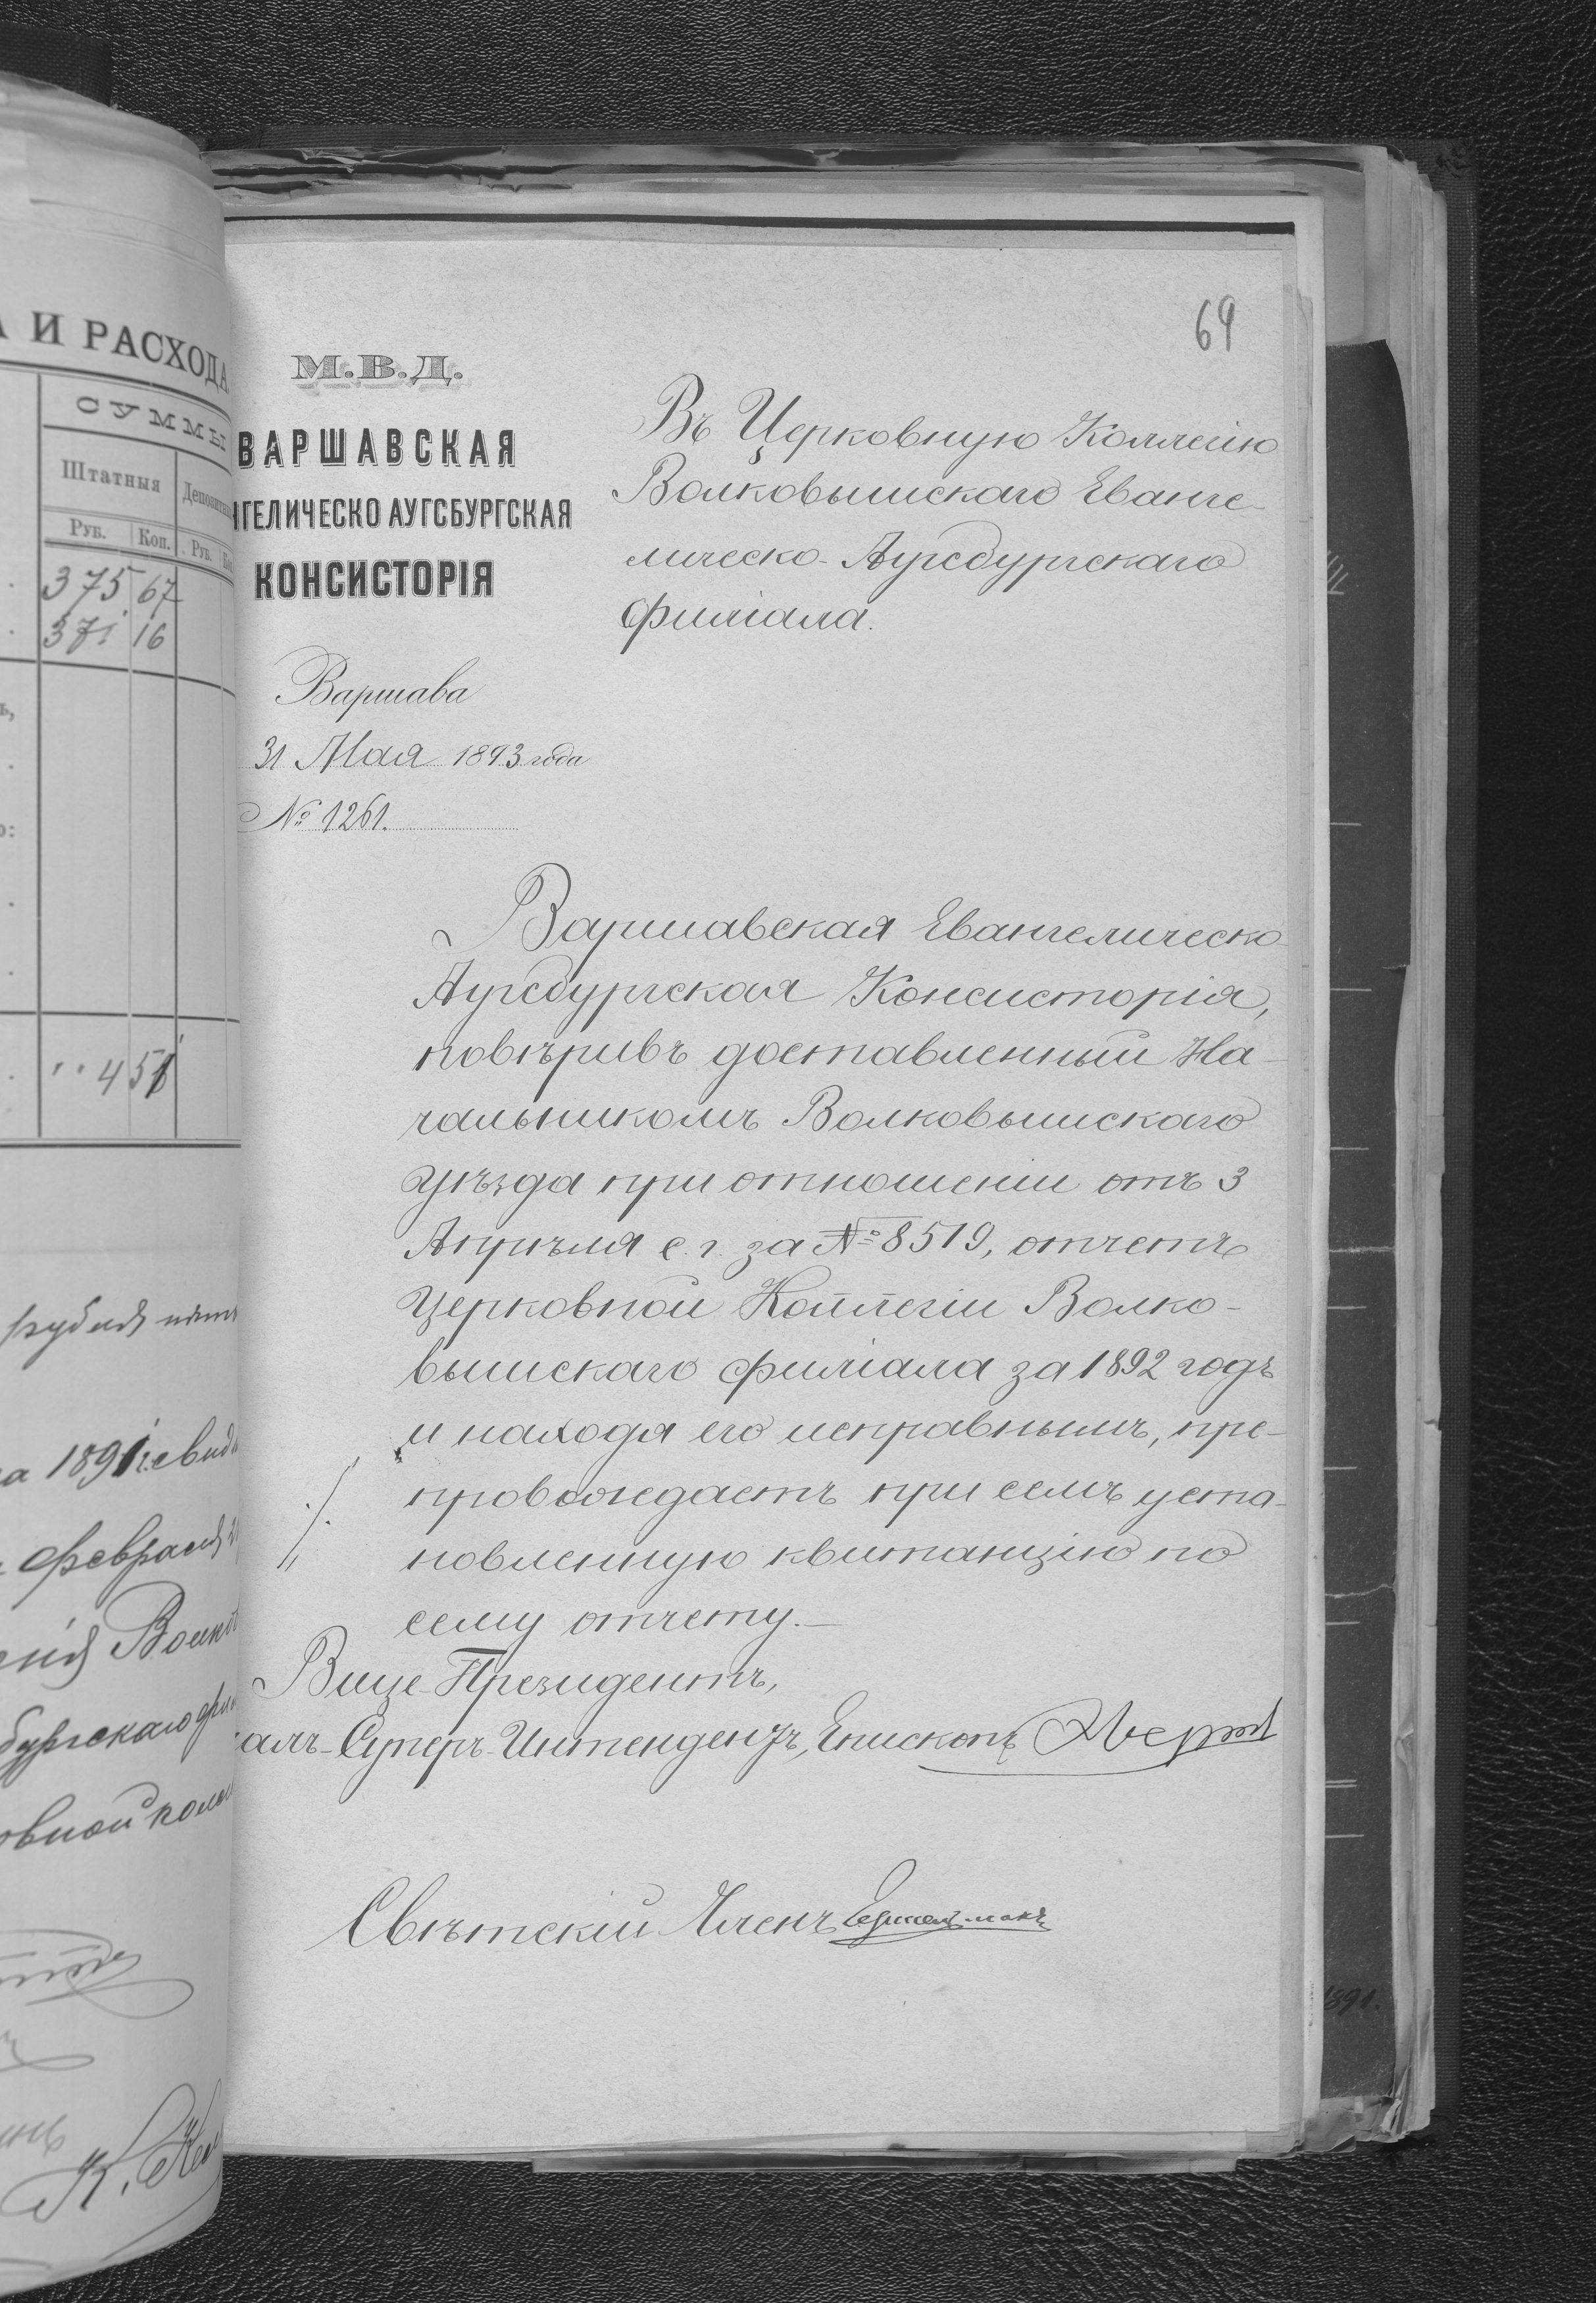 И РАСХОДА
СУММЫ
Штатныя
Руб. Коп. Руб.
375 67
371 16
4 51
рубля
1891
февраля
бургскаго
К.
69
М.В.Д.
ВАРШАВСКАЯ
НГЕЛИЧЕСКО АУГСБУРГСКАЯ
КОНСИСТОРІЯ
Варшава
31 Мая 1893 года
№ 1261.
Въ Церковную Коллегію
Волковышскаго Еванге-
лическо-Аугсбургскаго
филіала.
Варшавская Евангелическо-
Аугсбургская Консисторія,
повѣривъ доставленный На-
чальникомъ Волковышскаго
уѣзда при отношеніи отъ 3
Апрѣля с. г. за № 8519, отчетъ
Церковной Коллегіи Волко-
вышскаго филіала за 1892 годъ
и находя его исправнымъ, пре-
провождаетъ при семъ уста-
новленную квитанцію по
сему отчету.—
Вице-Президентъ,
алъ-Суперъ-Интендентъ, Епископъ
Свѣтскій Членъ
1891.